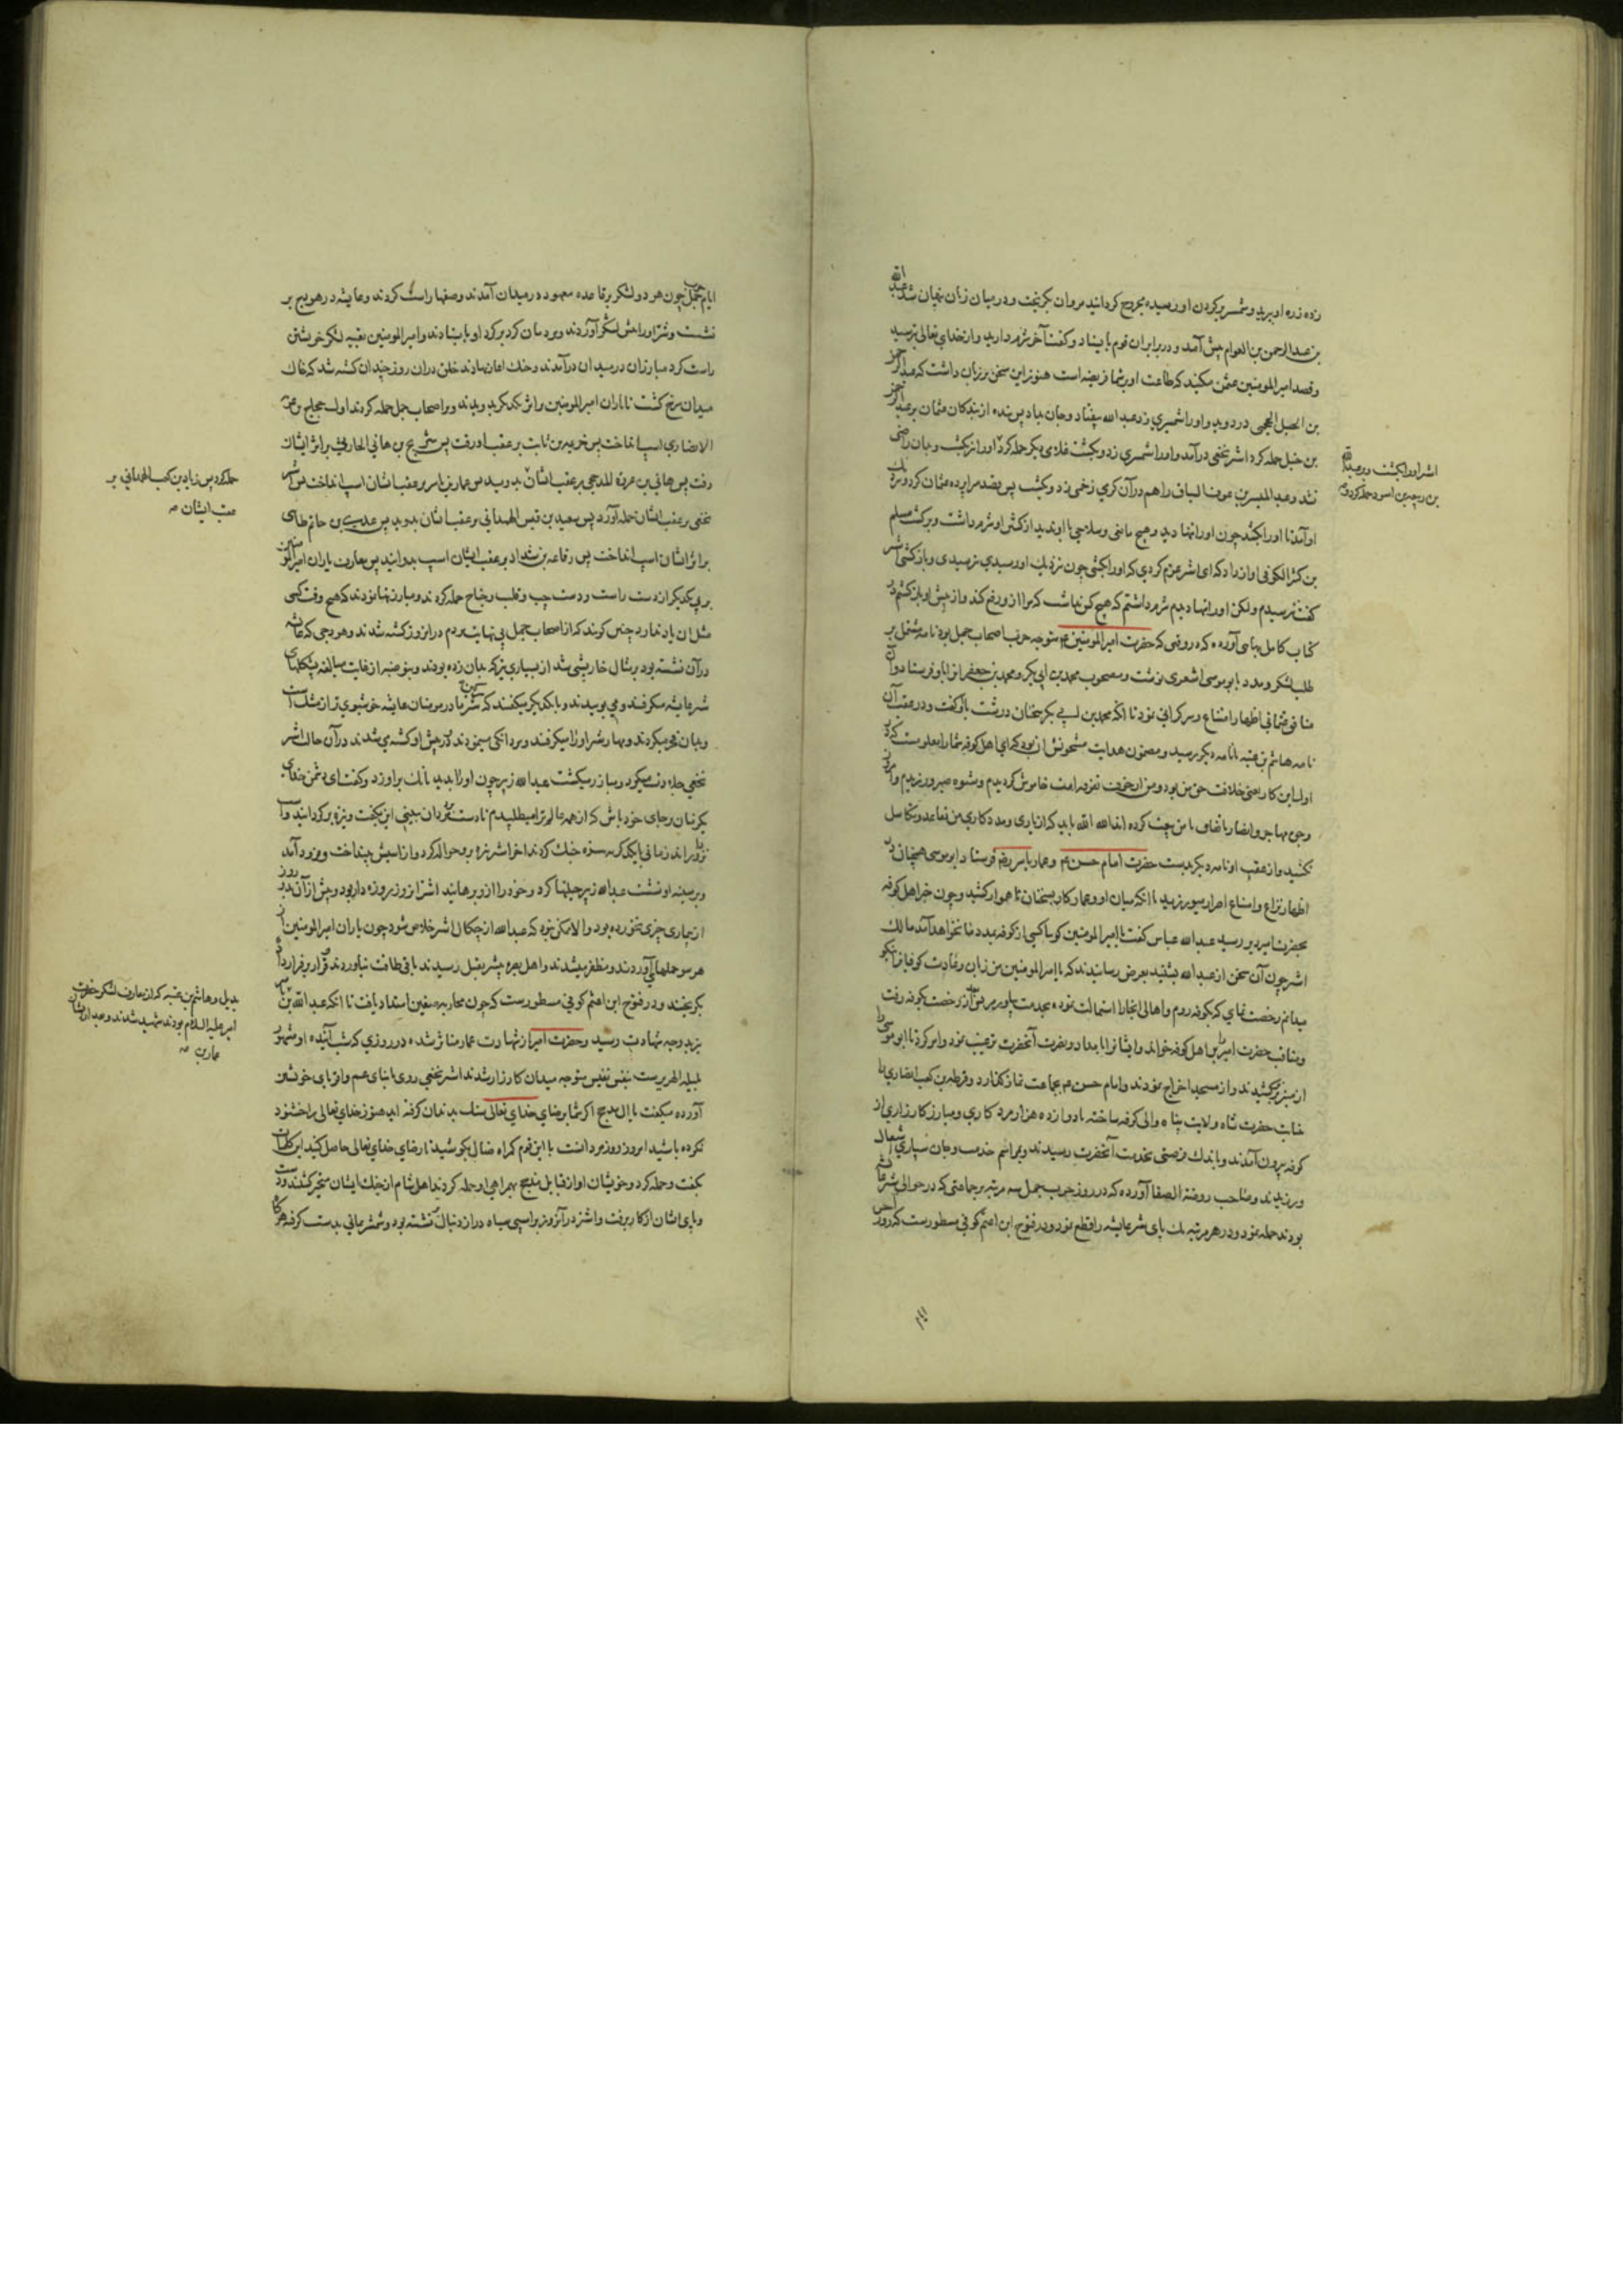 زده زره او برید و شمشیر بر کردن او رسیده مجروح کردانید مروان بکریخت و در میان زنان پنهان شد عبدالله
بن عبدالرحمن بن العوام پیش آمد و در برابر آن قوم بایستاد و گفت آخر شرم دارید و از خدای تعالی بترسید
و قصد امیرالمومنین عثمن مکنید که طاعت او بر شما فریضه است هنوز این سخن بر زبان داشت که عبدالرحمن
بن الجمحی در دوید و او را شمشیری زد عبدالله بیفتاد و جان بداد پس بنده از بندکان عثمان بر عبدالرحمن
بن حنبل حمله کرد اشتر نخعی درآمد و او را شمشیری زد و بکشت غلامی دیکر حمله کرد او را نیز بکشت و بدان راضی
نشد و عبدالله بن عوف را هم در آن کرمی زخمی زد و بکشت پس بقصد سراپرده عثمان کرد و نزدیک
او آمد تا او را بکشد چون او را تنها دید و هیچ مانعی و سلاحی با او ندید از کشتن او شرم داشت و برکشت مسلم
بن الکوفی آواز داد که ای اشتر عزم کردی که او را بکشی چون نزدیک او رسیدی بترسیدی و بازکشتی اشتر
گفت نترسیدم ولکن او را تنها دیدم شرم داشتم که هیچ کس نداشت که مرا از او رفع کند و از پیش او بازکشتم در
کتاب کامل بهائی آورده که در وقتی که حضرت امیرالمومنین ع متوجه حرب اصحاب جمل بود نامه مشتمل بر
طلب لشکر و مدد بابوموسی اشعری نوشت و مصحوب محمد بن ابی بکر و محمد بن جعفر او فرستاد و آن
منافق اظهار امتناع و سرکرانی نمود تا آنکه محمد بن ابی بکر سخنان درشت باو گفت و در عقب آن
نامه هاشم بن عتبه با نامه دیکر رسید و مضمون هدایت مشحونش آن بود که ای اهل کوفه شما را معلومست که در
اول این کار یعنی خلافت حق من بود و من از خوف تفرقه امت خاموش کردیدم و شیوه صبر ورزیدم و امروز
وجوه مهاجر و انصار باتفاق با من بیعت کرده اند الله الله باید که از یاری و مددکاری من تقاعد و تکاسل
نکنید و از عقب او نامه دیکر بدست حضرت امام حسن ع و عمار یاسر رضه فرستاد و ابوموسی همچنان در
اظهار نزاع و امتناع اصرار میورزید تا آنکه میان او و عمار کار بسخنان ناهموار کشید و چون خبر اهل کوفه
بحضرت امیر رسید عبدالله عباس گفت یا امیرالمومنین کویا کسی از کوفه بمدد ما نخواهد آمد مالک
اشتر چون آن سخن از عبدالله بشنید بعرض رسانید که یا امیرالمومنین من زبان و عادت کوفیان نیکو
میدانم رخصت نمای که بکوفه روم و اهالی انجا را استمالت نموده بخدمت بیاورم رخصت بکوفه رفت
و مناقب حضرت امیر بر اهل کوفه خواند و ایشانرا بامداد و نصرت آنحضرت ترغیب نمود و امر کرد تا ابوموسی را
از منبر بزیر کشیدند و از مسجد اخراج نمودند و امام حسن ع بجماعت نماز کذارد و قرظه بن کعب انصاری را
حضرت شاه ولایت پناه والی کوفه ساخته با دوازده هزار مرد کاری و مبارز کارزاری از
کوفه بیرون آمدند و باندک فرصتی بخدمت آنحضرت رسیدند و بمراسم خدمت و جان سپاری اشتغال
ورزیدند و صاحب روضة الصفا آورده که در روز حرب جمل سه مرتبه بر جماعتی که در حوالی شتر عایشه
بودند حمله نمود و در هر مرتبه یک پای شتر عایشه را قطع نمود و در فتوح ابن اعثم کوفی مسطورست که روز آخر
اشتر او را بکشت و عبدالله
بن ربیعه بن اسود حمله کرد
ایام حرب جمل چون هر دو لشکر بر قاعده معهوده در میدان آمدند و صفها راست کردند و عایشه در هودج بر
نشست و شتر او را پیش لشکر آوردند و مردمان کرد بر کرد او بایستادند و امیرالمومنین تعبیه لشکر خویشتن
راست کرد مبارزان در میدان درآمدند و جنک آغاز نهادند خلق در آن روز چندان کشته شد که خاک
میدان سرخ کشت یاران امیرالمومنین بر اثر یکدیکر و بر اصحاب جمل حمله کردند اول حجاج بن عمرو
الانصاری اسب انداخت پس خزیمه بن ثابت بر عقب او رفت پس شریح بن هانی الحارثی بر اثر ایشان
رفت پس هانی بن عروه المذحجی بر عقب ایشان بدوید پس عمار یاسر بر عقب ایشان اسب انداخت پس اشتر
نخعی بر عقب ایشان حمله آورد پس سعید بن قیس الهمدانی بر عقب ایشان بدوید پس عدی بن حاتم طائی
بر اثر ایشان اسب انداخت پس رفاعه بن شداد بر عقب ایشان اسب بدوانید پس معارف یاران امیرالمومنین
بر پی یکدیکر از دست راست و دست چپ و قلب و جناح حمله کردند و مبارزتها نمودند که هیچ وقت کسی
مثل آن یاد ندارد چنین کویند که از اصحاب جمل بی نهایت مردم در آنروز کشته شدند و هودجی که عایشه
در آن نشسته بود بر مثال خارپشتی شد از بسیاری تیر که بدان زده بودند و بنو ضبه از غایت مبالغه پشکلهای
شتر عایشه میکرفتند و می بوییدند و با یکدیکر میکفتند که سرکین شتر مادر مومنان عایشه خوشبوی تر از مشک است
و بدان فخر میکردند و مهار شتر او را میکرفتند و مردانکی مینمودند و در پیش او کشته می شدند در آن حال اشتر
نخعی حمله میکرد و مبارز میکشت عبدالله زبیر چون او را بدید بانک بر او زد و کفت ای دشمن خدای
یکزمان بر جای خود باش که از همه عالم ترا میطلبیدم تا دست مردان ببینی این بکفت و نیزه بر کردانید و اسب
نزد او راند زمانی با یکدیکر به نیزه جنک کردند آخر اشتر نیزه بر وی حواله کرد و از اسبش بینداخت و فرود آمد
و بر سینه او نشست عبدالله زبیر حیلتها کرد و خود را از او برهانید اشتر آنروز روزه دار بود و پیش از آن دو روز
از بیماری چیزی نخورده بود و الا ممکن نبود که عبدالله از چنکال اشتر خلاص شود چون یاران امیرالمومنین از
هر سو حملها می آوردند و مظفر میشدند و اهل بصره بیشتر بقتل رسیدند باقی طاقت نیاوردند قرار بر فرار داده
بکریختند و در فتوح ابن اعثم کوفی مسطورست که چون محاربه صفین امتداد یافت تا آنکه عبدالله بن
بدرجه شهادت رسید و حضرت امیر از شهادت عمار متاثر شده در روزی که شب آینده او مشهور
بلیلة الهریرست بنفس نفیس متوجه میدان کارزار شدند اشتر نخعی روی بابنای عم و اقربای خویشتن
آورده میکفت یا آل مذحج اکر شما برضای خدای تعالی سنک بدندان کرفته اید هنوز خدای تعالی را خشنود
نکرده باشید امروز روز مردانست با این قوم کمراه ضال بکوشید تا رضای خدای تعالی حاصل کنید این کلمات
بکفت و حمله کرد و خویشان او از قبایل مذحج بهمراهی او حمله کردند اهل شام از جنک ایشان متحیر کشتند و دست
و پای ایشان از کار برفت و اشتر در آنروز بر اسبی سیاه دراز دنبال نشسته بود و شمشیر یمانی بدست کرفته هرکاه
حمله کرد پس زیاد بن کعب الهمدانی بر
عقب ایشان صه
بدیل و هاشم بن عتبه که از معارف لشکر حضرت
امیر علیه السلام بودند شهید شدند و بعد از ایشان
عمار صه